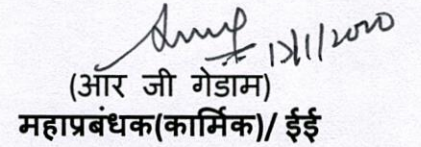 13/1/2020
(आर जी गेडाम)
महाप्रबंधक(कार्मिक)/ ईई